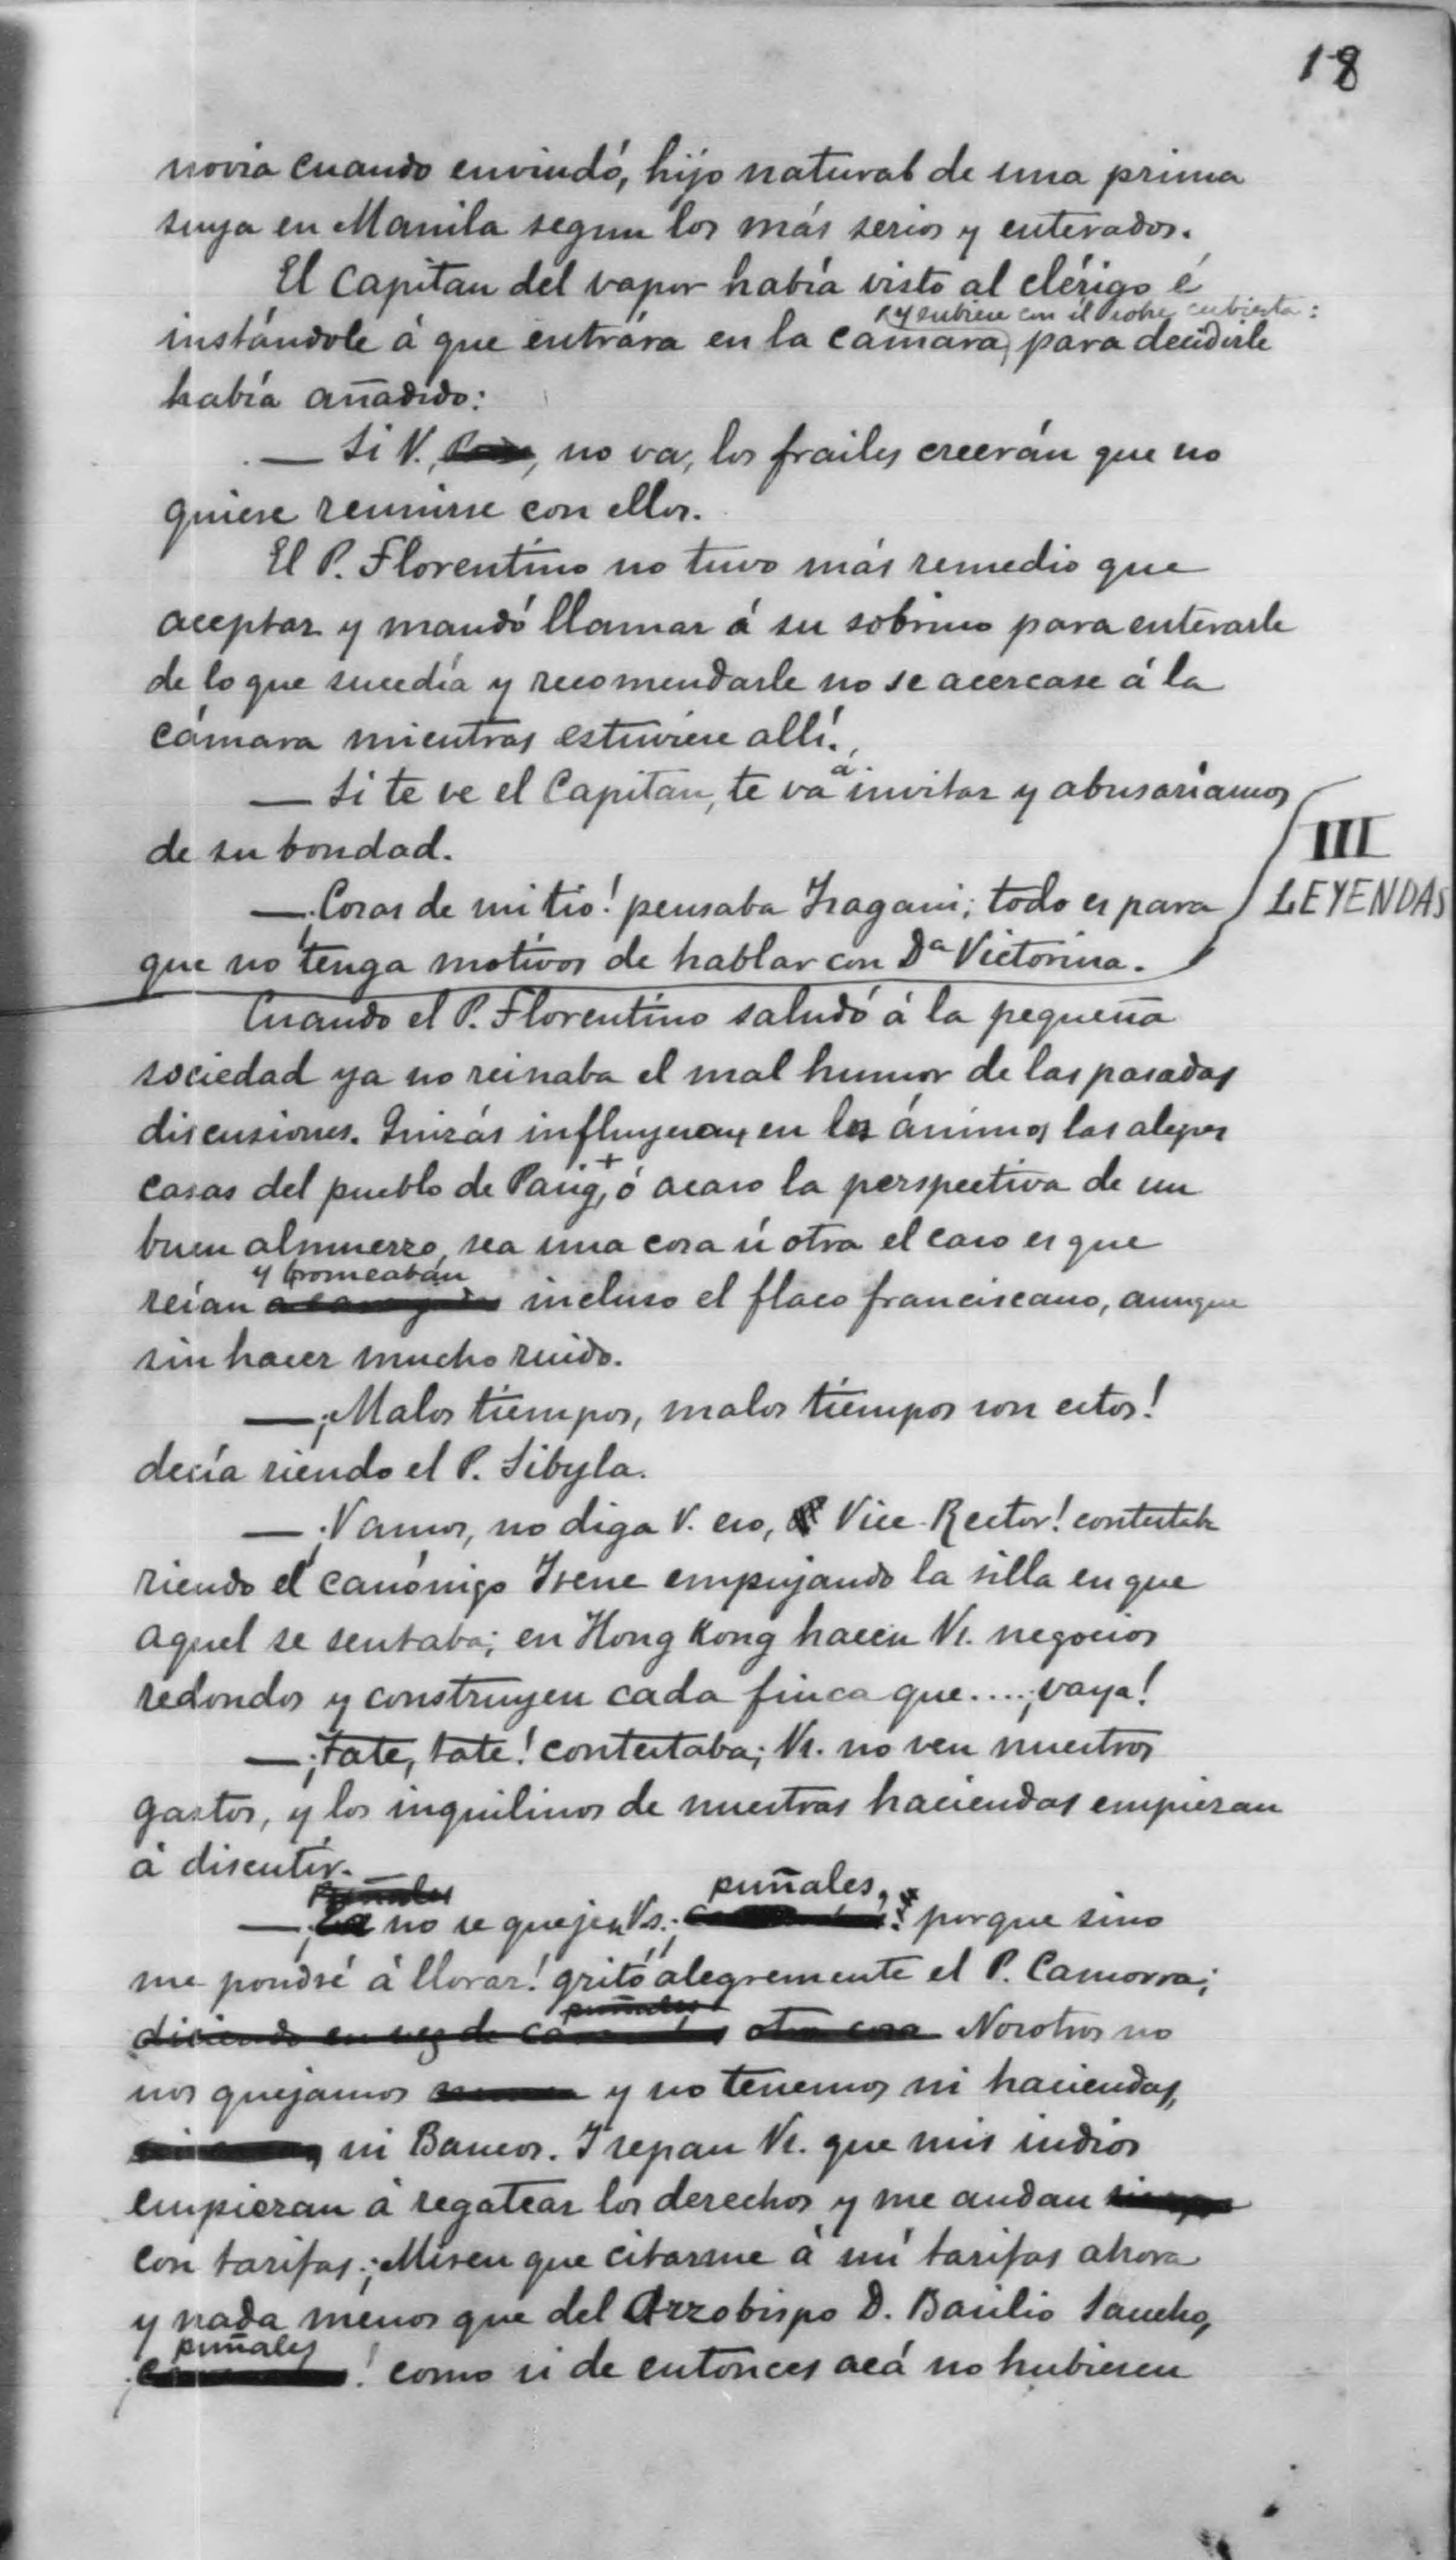 18
novia cuando enviudó, hijo natural de una prima
suya en Manila segun los más serios y enterados.
El Capitan del vapor había visto al clérigo é
y subiese con él sobre cubierta:
instándole á que entrára en la cámara, para decidirle
había añadido:
— Si V., no va, los frailes creerán que no
quiere reunirse con ellos.
El P. Florentino no tuvo más remedio que
aceptar y mandó llamar á su sobrino para enterarle
de lo que sucedía y recomendarle no se acercase á la
cámara mientras estuviese allí.
— Si te ve el Capitan, te va á invitar y abusaríamos
de su bondad.
III
LEYENDAS
— ¡Cosas de mi tío! pensaba Isagani; todo es para
que no tenga motivos de hablar con Dª Victorina.
Cuando el P. Florentino saludó á la pequeña
sociedad ya no reinaba el mal humor de las pasadas
discusiones. Quizás influyeran en los ánimos las alegres
casas del pueblo de Pasig, ó acaso la perspectiva de un
buen almuerzo, sea una cosa ú otra el caso es que
y bromeaban
reían incluso el flaco franciscano, aunque
sin hacer mucho ruido.
— ¡Malos tiempos, malos tiempos son estos!
decía riendo el P. Sibyla.
— ¡Vamos, no diga V. eso, Vice-Rector! contestaba
riendo el canónigo Irene empujando la silla en que
aquel se sentaba; en Hong Kong hacen Vs. negocios
redondos y construyen cada finca que.... ¡vaya!
— ¡Tate, tate! contestaba; Vs. no ven nuestros
gastos, y los inquilinos de nuestras haciendas empiezan
á discutir.
Puñales puñales,
— ¡Ea no se quejen Vs.; porque sino
me pondré á llorar! gritó alegremente el P. Camorra;
puñales
diciendo en vez de otra cosa Nosotros no
nos quejamos y no tenemos ni haciendas,
ni Bancos. Y sepan Vs. que mis indios
empiezan á regatear los derechos y me andan
con tarifas. ¡Miren que citarme á mí tarifas ahora
y nada menos que del Arzobispo D. Basilio Sancho,
puñales
! como si de entonces acá no hubiesen